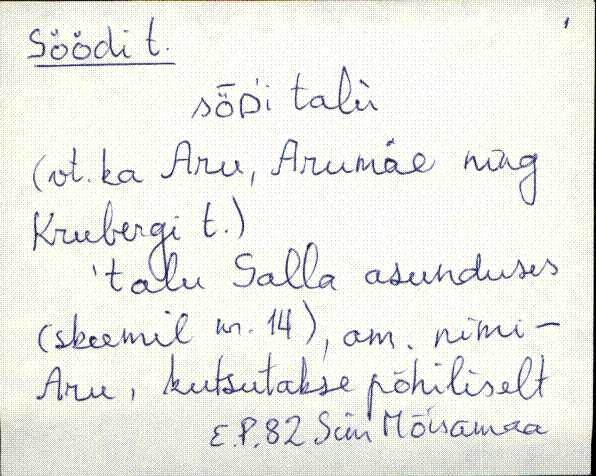 Söödi t.
sȫᴅ́i talù
(vt. ka Aru, Arumäe ning
Krubergi t.)
talu Salla asunduses
(skeemil nr. 14), am. nimi -
Aru, kutsutakse põhiliselt
E.P.82 Siiri Mõisamaa